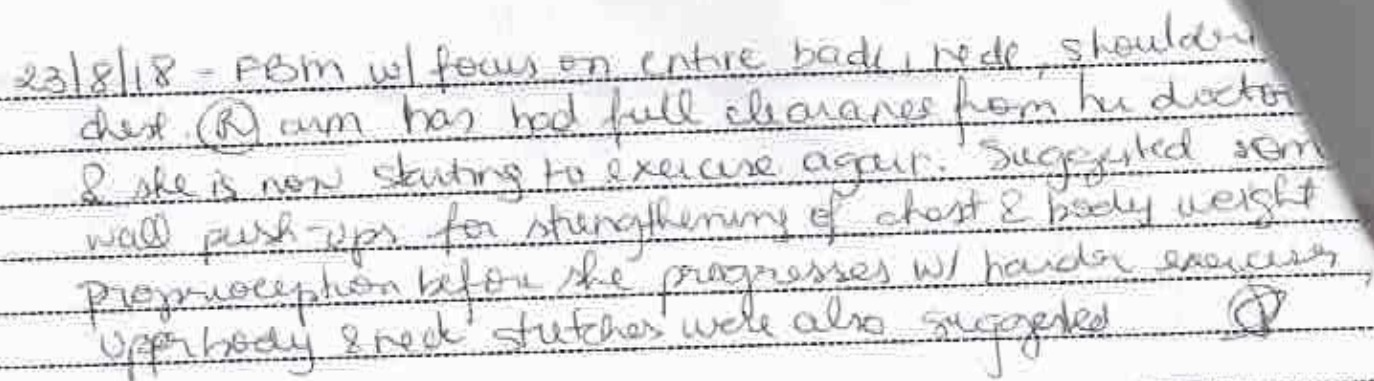 23/8/18 - FBM w/ focus on entire back, neck, shoulder
chest. (R) arm has had full clearance from her doctor
& she is now starting to exercise again. Suggested som
wall push-ups for strengthening of chest & body weight
proprioception before she progresses w/ harder exercises,
upper body & neck stretches were also suggested